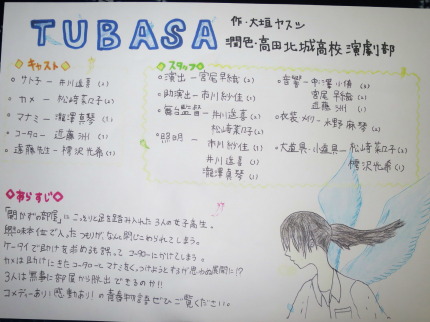 TUBASA
作・大垣ヤスシ
潤色・高田北城高校 演劇部
◇キャスト
○サト子 ー 井川遥喜(2)
○カメ ー 松崎菜々子(2)
○マナミー 瀧澤真琴(1)
○コータロー 近藤
○遠藤先生ー 樗沢光希(1)
☆スタッフ
○演出 ー 宮尾早織(2)
○助演出 ー 市川紗佳(1)
○舞台監督 ー 井川遥喜(2)
松崎菜々子(2)
○照明 ー 市川紗佳(1)
井川遥喜
瀧澤真琴(1)
○音響ー
宮尾早織(2)
近藤
○衣装メリ ー 水野麻琴(2)
○大道具・小道具 ー 松崎菜々子(2)
樗沢光希(1)
◇あらすじ◇
「開かずの部屋」にこっそりと足を踏み入れた3人の女子高生。
興味本位で入ったつもりが、なんと閉じこめられてしまう。
ケータイで助けを求めるも誤ってコータローにかけてしまう。
カメは助けにきたコータローとマナミをくっつけようとするが思わぬ展開に!?
3人は無事に部屋から脱出できるのか!!
コメディーあり!感動あり!の青春物語ぜひご覧ください。